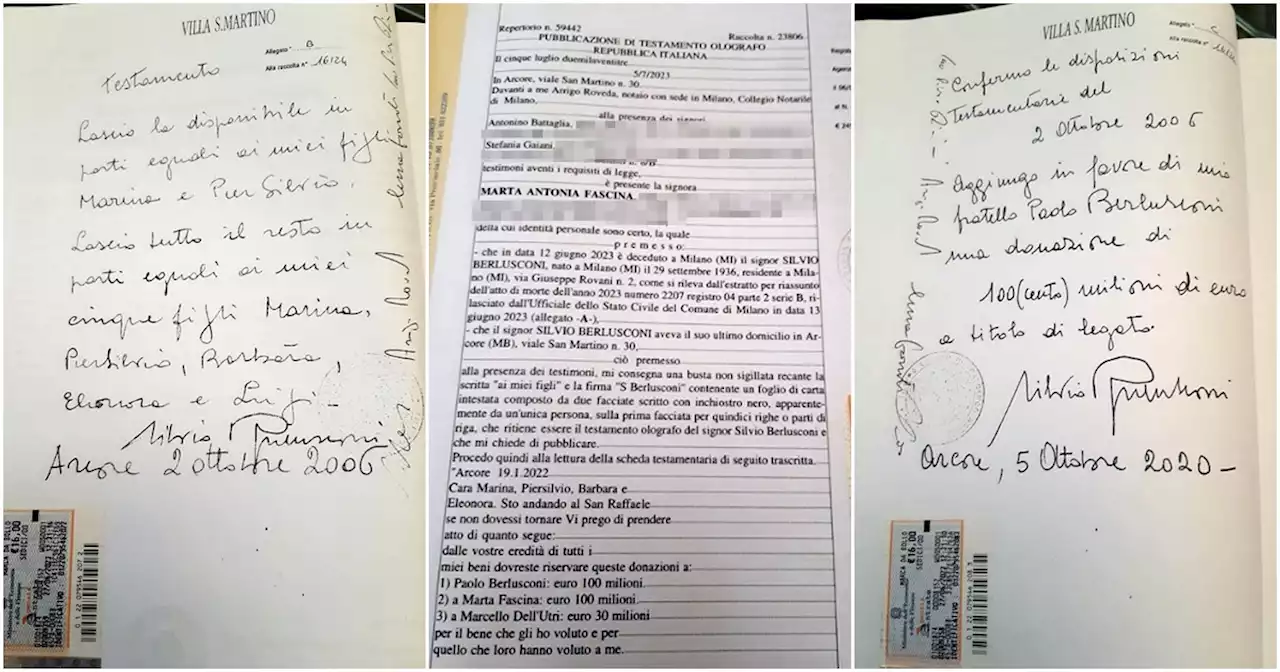 VILLA S.MARTINO
Allegato " B
Alla raccolta n° 16124
Testamento
Lascio la disponibile in
parti eguali ai miei figli
Marina e Pier Silvio.
Lascio tutto il resto in
parti eguali ai miei
cinque figli Marina,
Piersilvio, Barbara,
Eleonora e Luigi -
Silvio Berlusconi
Arcore 2 Ottobre 2006
MARCA DA BOLLO
€16,00
SEDICI/00
Repertorio n. 59442
Raccolta n. 23806
PUBBLICAZIONE DI TESTAMENTO OLOGRAFO
REPUBBLICA ITALIANA
Il cinque luglio duemilaventitre
5/7/2023
In Arcore, viale San Martino n. 30,
Davanti a me Arrigo Roveda, notaio con sede in Milano, Collegio Notarile
di Milano,
alla presenza dei signori
Antonino Battaglia,
Stefania Gaiani,
testimoni aventi i requisiti di legge,
è presente la signora
MARTA ANTONIA FASCINA,
della cui identità personale sono certo, la quale
premesso:
- che in data 12 giugno 2023 è deceduto a Milano (MI) il signor SILVIO
BERLUSCONI, nato a Milano (MI) il 29 settembre 1936, residente a Mila-
no (MI), via Giuseppe Rovani n. 2, come si rileva dall'estratto per riassunto
dell'atto di morte dell'anno 2023 numero 2207 registro 04 parte 2 serie B, ri-
lasciato dall'Ufficiale dello Stato Civile del Comune di Milano in data 13
giugno 2023 (allegato -A-),
- che il signor SILVIO BERLUSCONI aveva il suo ultimo domicilio in Ar-
core (MB), viale San Martino n. 30,
ciò premesso
alla presenza dei testimoni, mi consegna una busta non sigillata recante la
scritta "ai miei figli" e la firma "S Berlusconi" contenente un foglio di carta
intestata composto da due facciate scritto con inchiostro nero, apparente-
mente da un'unica persona, sulla prima facciata per quindici righe o parti di
riga, che ritiene essere il testamento olografo del signor Silvio Berlusconi e
che mi chiede di pubblicare.
Procedo quindi alla lettura della scheda testamentaria di seguito trascritta.
"Arcore 19.1.2022
Cara Marina, Piersilvio, Barbara e
Eleonora. Sto andando al San Raffaele
se non dovessi tornare Vi prego di prendere
atto di quanto segue:
dalle vostre eredità di tutti i
miei beni dovreste riservare queste donazioni a:
1) Paolo Berlusconi: euro 100 milioni.
2) a Marta Fascina: euro 100 milioni.
3) a Marcello Dell'Utri: euro 30 milioni
per il bene che gli ho voluto e per
quello che loro hanno voluto a me.
VILLA S.MARTINO
Allegato " C
Alla raccolta n° 16124
Confermo le disposizioni
Testamentarie del
2 Ottobre 2006
Aggiungo in favore di mio
fratello Paolo Berlusconi
una donazione di
100 (cento) milioni di euro
a titolo di legato.
Silvio Berlusconi
Arcore, 5 Ottobre 2020 -
MARCA DA BOLLO
€16,00
SEDICI/00